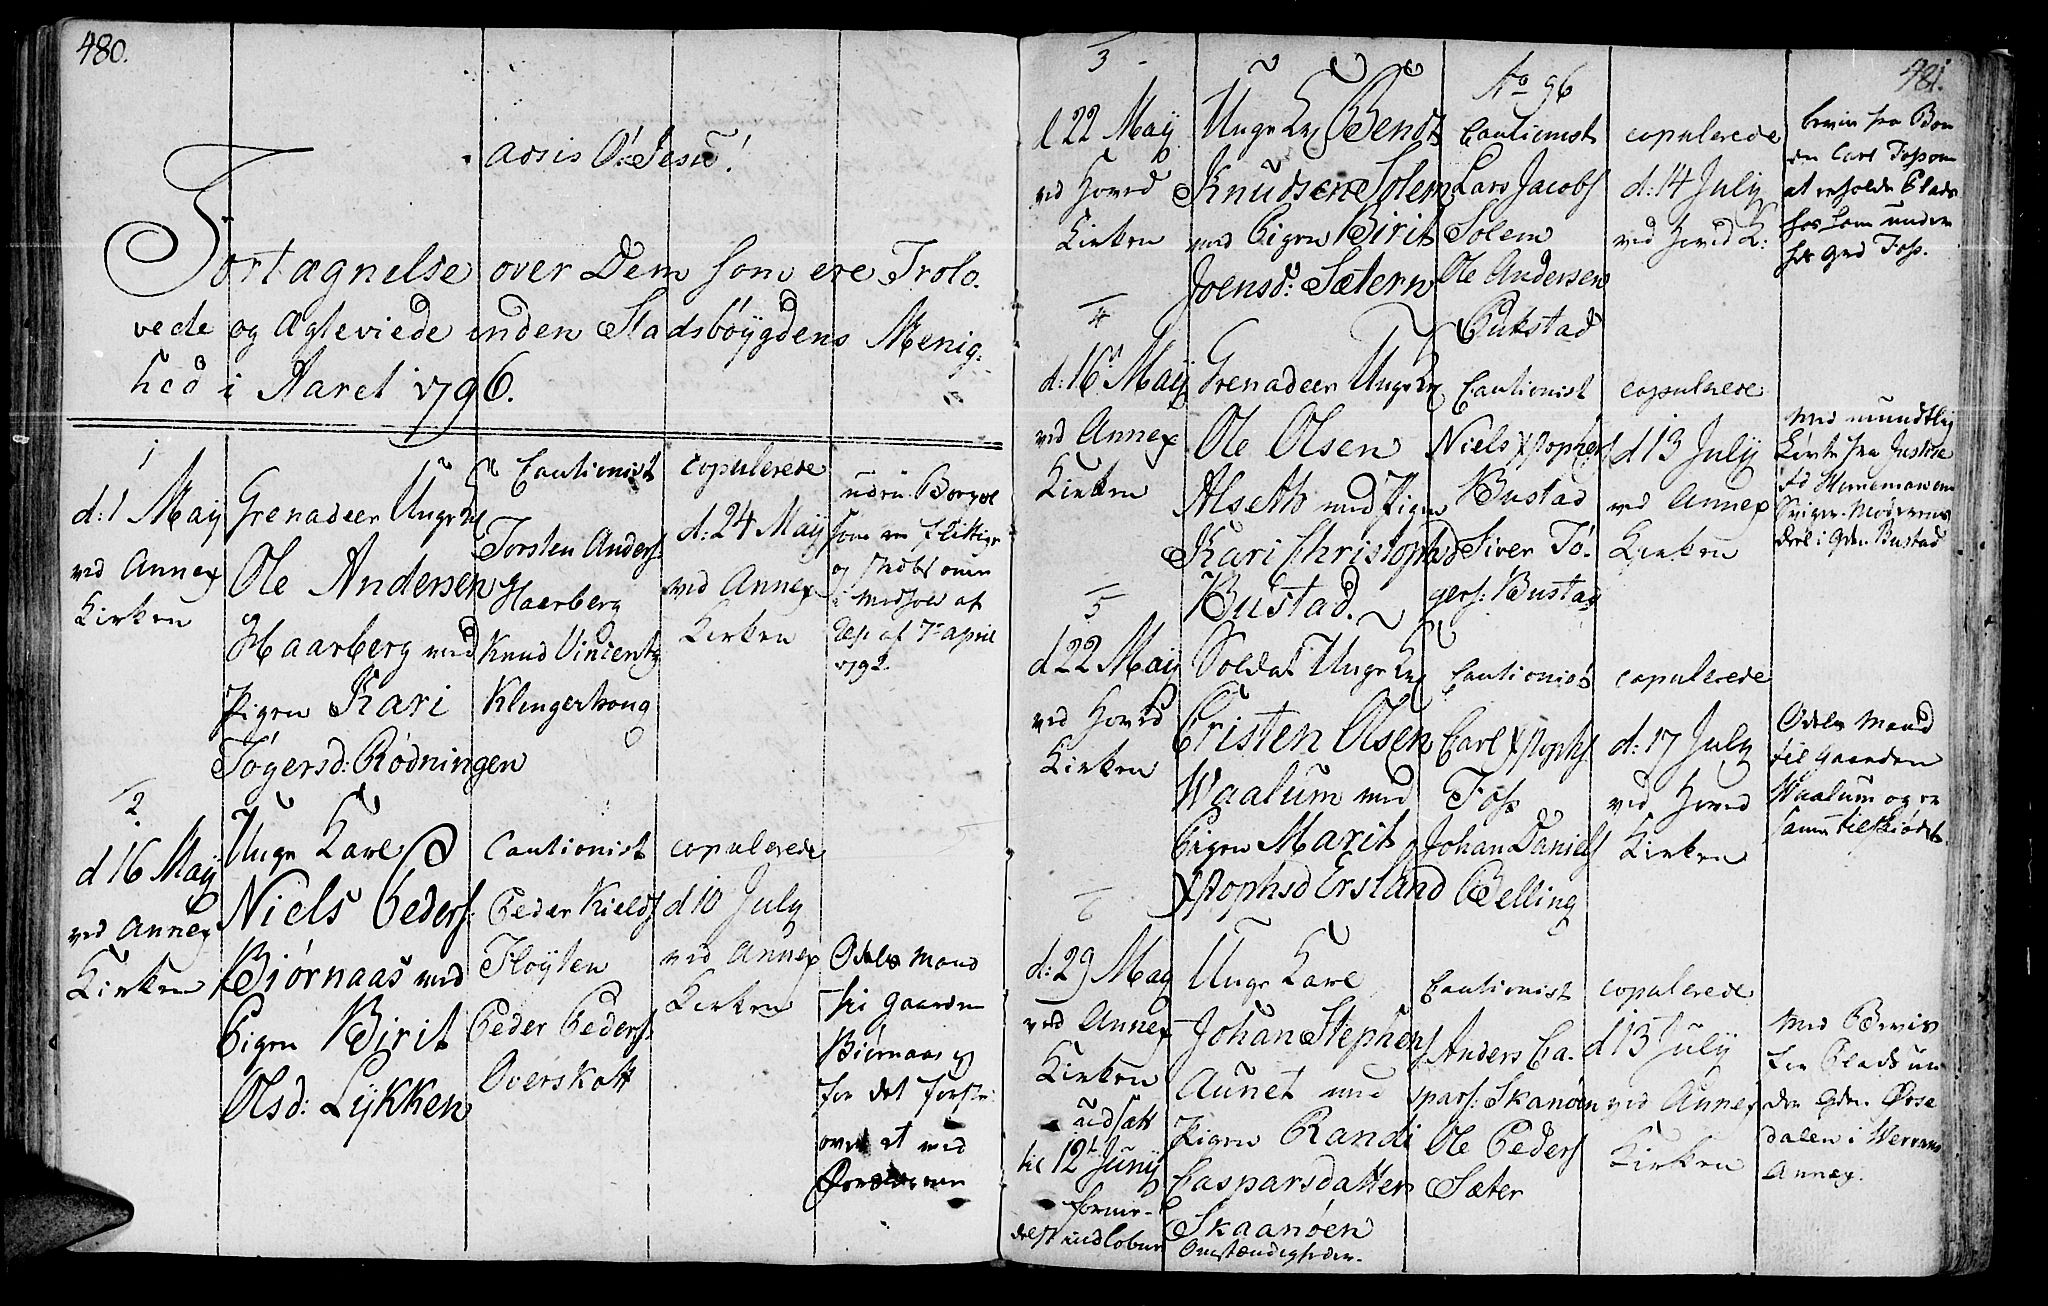 480.
adsis O: Jesu!
Fortægnelse over Dem som ere Trolo-
vede og Ægteviede inden Stadsbøygdens Menig-
hed i Aaret 1796.
1
d: 1 May
ved Annex
Kirken
Grenadeer Unge K
Ole Andersen
Haarberg med
Pigen Kari
Tøgersd: Rødningen
Cautionist
Torsten Anders
Haerberg
Knud Vincentz
Klingerhoug
copulerede
d: 24 May
ved Annex
Kirken
som en flittig
og
i Medhold af
af 7de april
1792.
2
d 16 May
ved Annex
Kirken
Unge Karl
Niels Peders:
Biørnaas med
Pigen Birit
Olsd: Lykken
Cautionist
Peder Kields
Fløyten
Peder Peders
Overskott
copulerede
d 10 July
ved Annex
Kirken
Odels Mand
til Gaarden
Biørnaas og
for det første
over at med
3
d 22 May
ved Hoved
Kirken
Unge K Bendt
Knudsen Solem
med Pigen Birit
Joensd: Sætern
No 96
Cautionist
Lars Jacobs
Solem
Ole Andersen
Pukstad
copulerede
d: 14 July
ved Hovid K:
481.
bevis fra Bon
den Carl
at erholde Plads
hos ham under
Grd Foss.
4
d: 16 May
ved Annex
Kirken
Grenadeer Unge K
Ole Olsen
Alseth med Pigen
Kari Christophd
Bustad.
Cautionist
Niels Xstophers
Bustad
Siver Tø-
gers: Bustad
copulerede
d 13 July
ved Annex
Kirken
Med mundtlig
fra
deel i Gden Bustad
5
d 22 May
ved Hoved
Kirken
Soldat Unge K
Cristen Olsen
Waalum med
Pigen Marit
Xstophsd Ersland
Cautionist
Carl Xstophs
Foss
Johan Daniels
Belling
copulerede
d: 17 July
ved Hoved
Kirken
Odels Mand
til Gaarden
Waalum og er
samme tilskiødet.
6
d: 29 May
ved Annex
Kirken
udsatt
til 12t Juny
forme-
delst indløbne
Unge Karl
Johan Stephens
Aunet med
Pigen Randi
Caspersdatter
Skaanøen
Omstændigheder.
Cautionist
Anders Ca-
spars: Skanøen
Ole Peders
Sæter
copulerede
d 13 July
ved Annex
Kirken
Med Bevis
for Plads un
der Gden
dalen i Werrans
Annex.